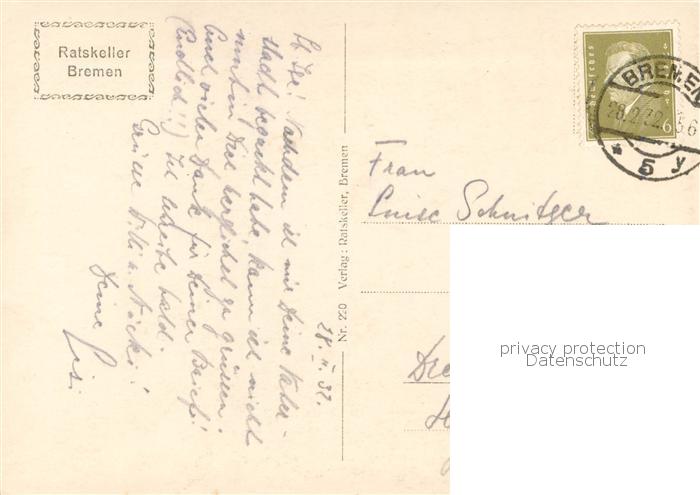 Ratskeller
Bremen
28. II. 32.
Nachdem ich mir Deine Vater-
stadt beguckt habe, kann ich nicht
umhin Dich herzlichst zu grüssen!
vielen Dank für Deinen Brief!
(Endlich!!) Ich schreibe bald.
Grüsse Willi u.
Deine
Nr. 220 Verlag: Ratskeller, Bremen
Deutsches
6
BREMEN
28.2.32
5 y
Frau
Luise Schnitger
Dre
privacy protection
Datenschutz